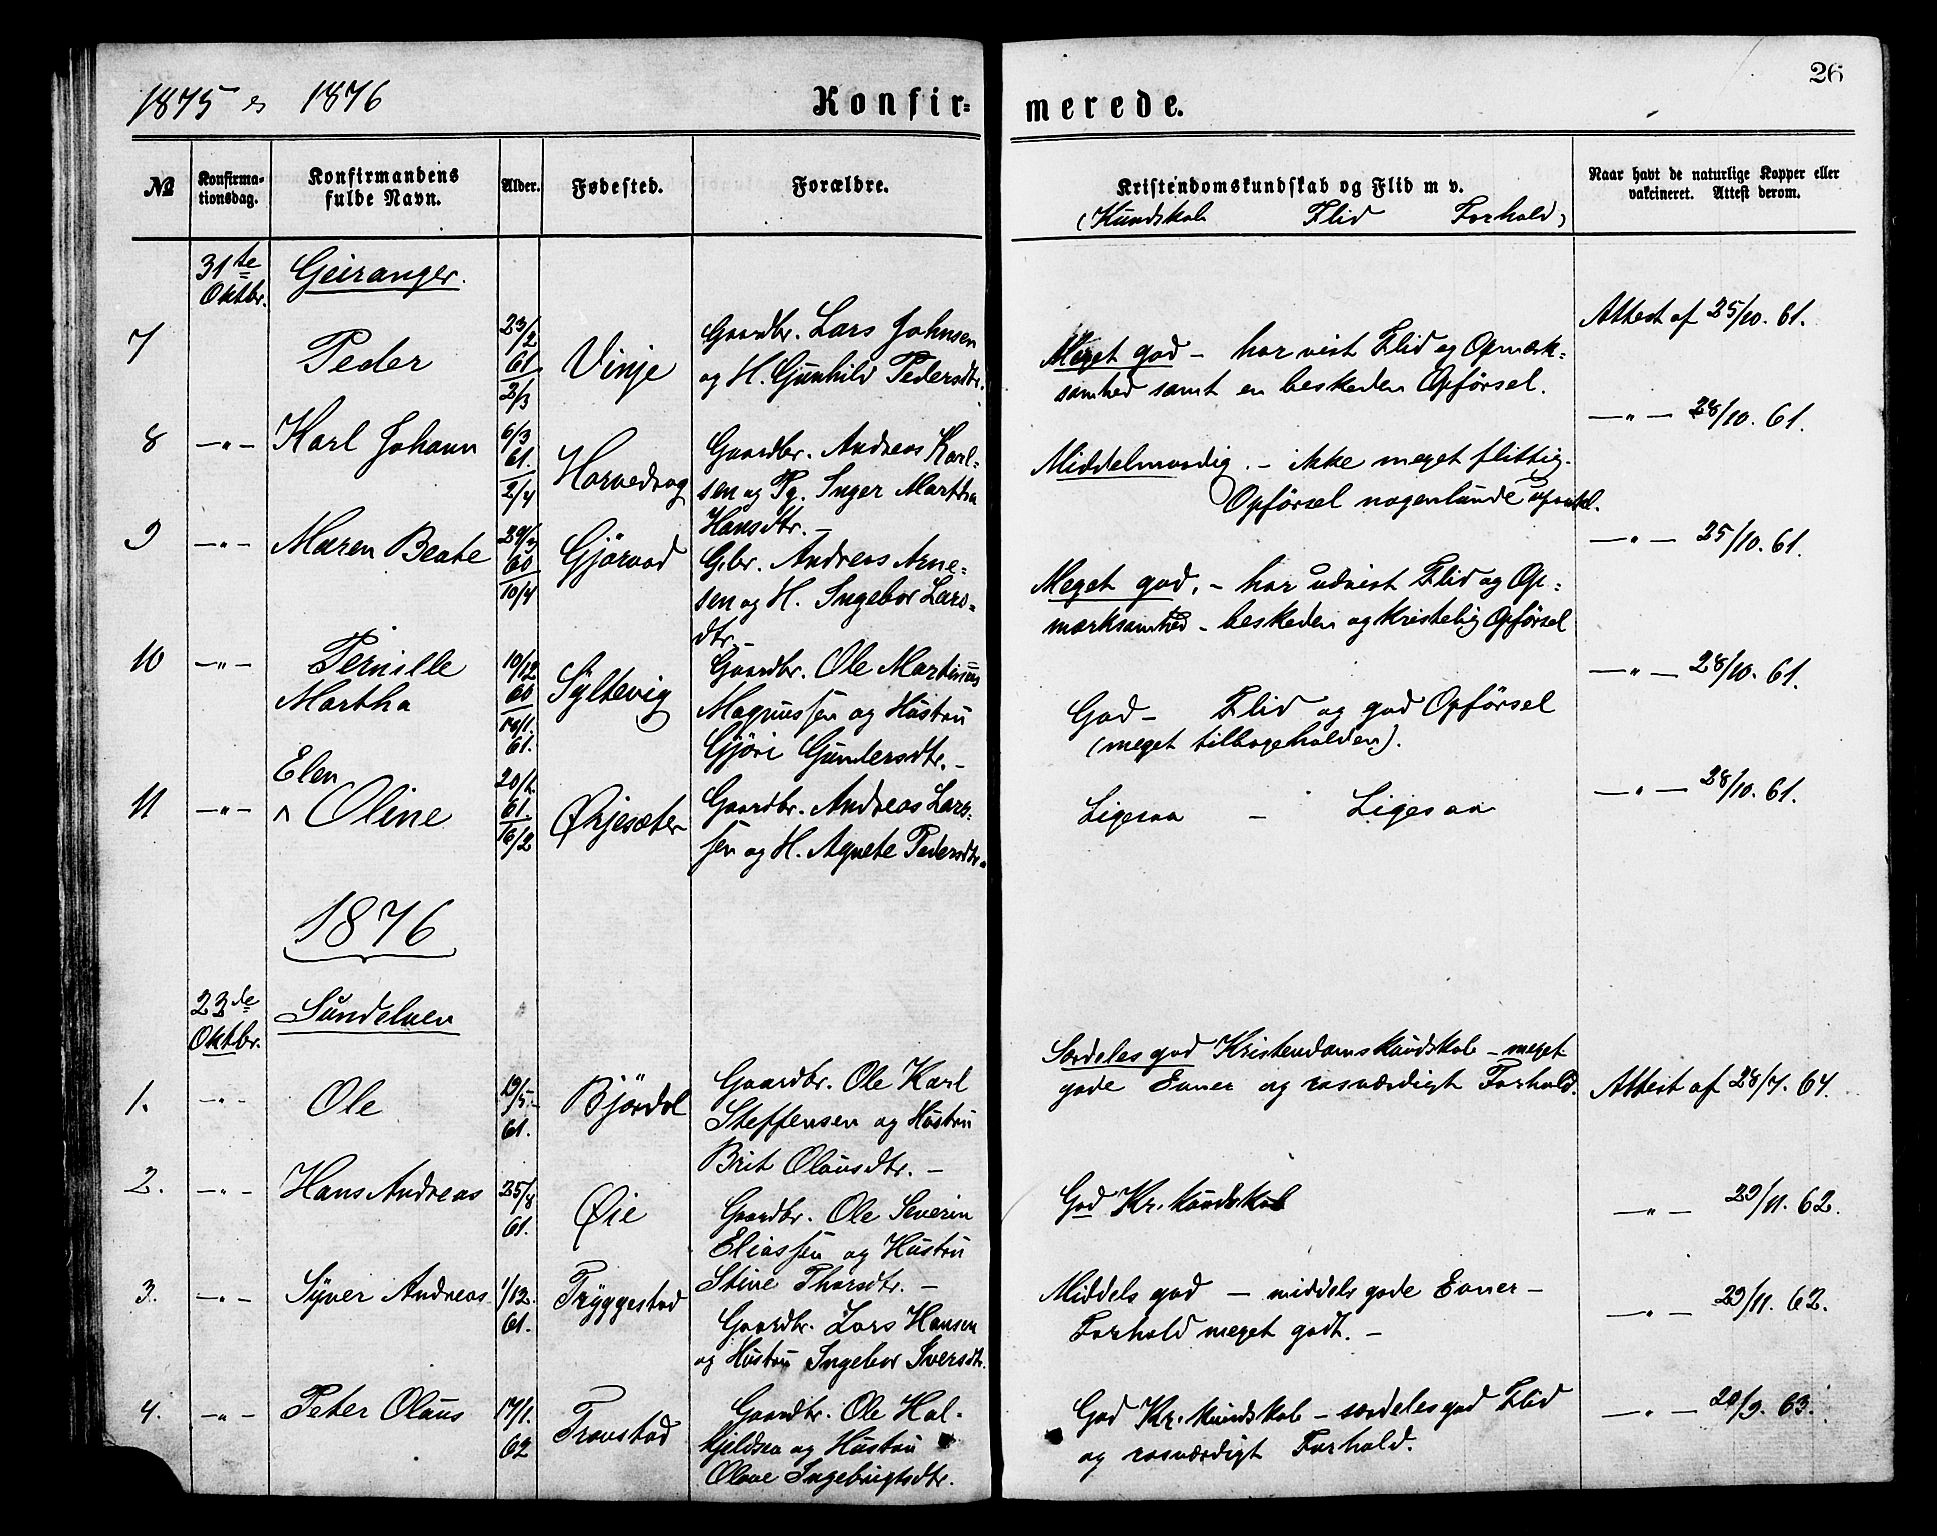 1875 og 1876
Konfir=
merede.
26
№
Konfirma-
tionsdag.
Konfirmandens
fulde Navn.
Alder.
Fødested.
Forældre.
Kristendomskundskab og Flid m v.
(Kundskab Flid Forhold)
Naar havt de naturlige Kopper eller
vakcineret. Attest derom.
31te
Oktbr.
Geiranger.
7
Peder
23/2
61
2/3
Vinje
Gaardbr. Lars Johnsen
og H. Gunhild Pedersdtr.
Meget god - har vist Flid og Opmærk=
somhed samt en beskeden Opførsel.
Attest af 25/10. 61.
8 —„—
Karl Johann
6/3
61.
2/4
Horvedrag
Gaardbr. Andreas Karl=
sen og Pg. Inger Martha
Hansdtr. —
Middelmaadig. - ikke meget flittig.
Opførsel nogenlunde
—„— 28/10. 61.
9 —„—
Maren Beate
60
10/4
Gjörvad
Gbr. Andreas Arne=
sen og H. Ingebor Lars=
dtr. —
Meget god. - har udvist Flid og Op=
mærksomhed - beskeden og kristelig Opførsel
—„— 25/10. 61.
10 —„—
Pernille
Martha
10/12
60
61.
Syltevig
Gaardbr. Ole Martinus
Magnussen og Hustru
Gjöri Gundersdtr. —
God - Flid og god Opførsel
(meget tilbageholden).
—„— 28/10. 61.
11 —„—
Elen
^ Oline
61.
16/2
Ørjesæter
Gaardbr. Andreas Lars=
sen og H. Agnete Pedersdtr.
Ligesaa - Ligesaa
—„— 28/10. 61.
1876
23de
Oktbr.
Sundelven
1. —„—
Ole
19/5.
61.
Bjørdal
Gaardbr. Ole Karl
Steffensen og Hustru
Brit Olausdtr. —
Særdeles god Kristendomskundskab - meget
gode Evner og rosværdigt Forhold.
Attest af 28/7. 64.
2. —„—
Hans Andreas
25/8
61.
Øie
Gaardbr. Ole Severin
Eliassen og Hustru
Stine Thorsdtr. —
God Kr. kundskab
—„— 29/11. 62.
3. —„—
Syver Andreas
1/12.
61.
Tryggestad
Gaardbr. Lars Hansen
og Hustru Ingebor Iversdtr.
Middels god — middels gode Evner -
Forhold meget godt. —
—„— 29/11. 62.
4. —„—
Peter Olaus
17/1.
62
Tronstad
Gaardbr. Ole Hal-
kjeldsen og Hustru
Olave Ingebrigtsdtr.
God Kr. kundskab - særdeles god Flid
og rosværdigt Forhold.
—„— 20/9. 63.